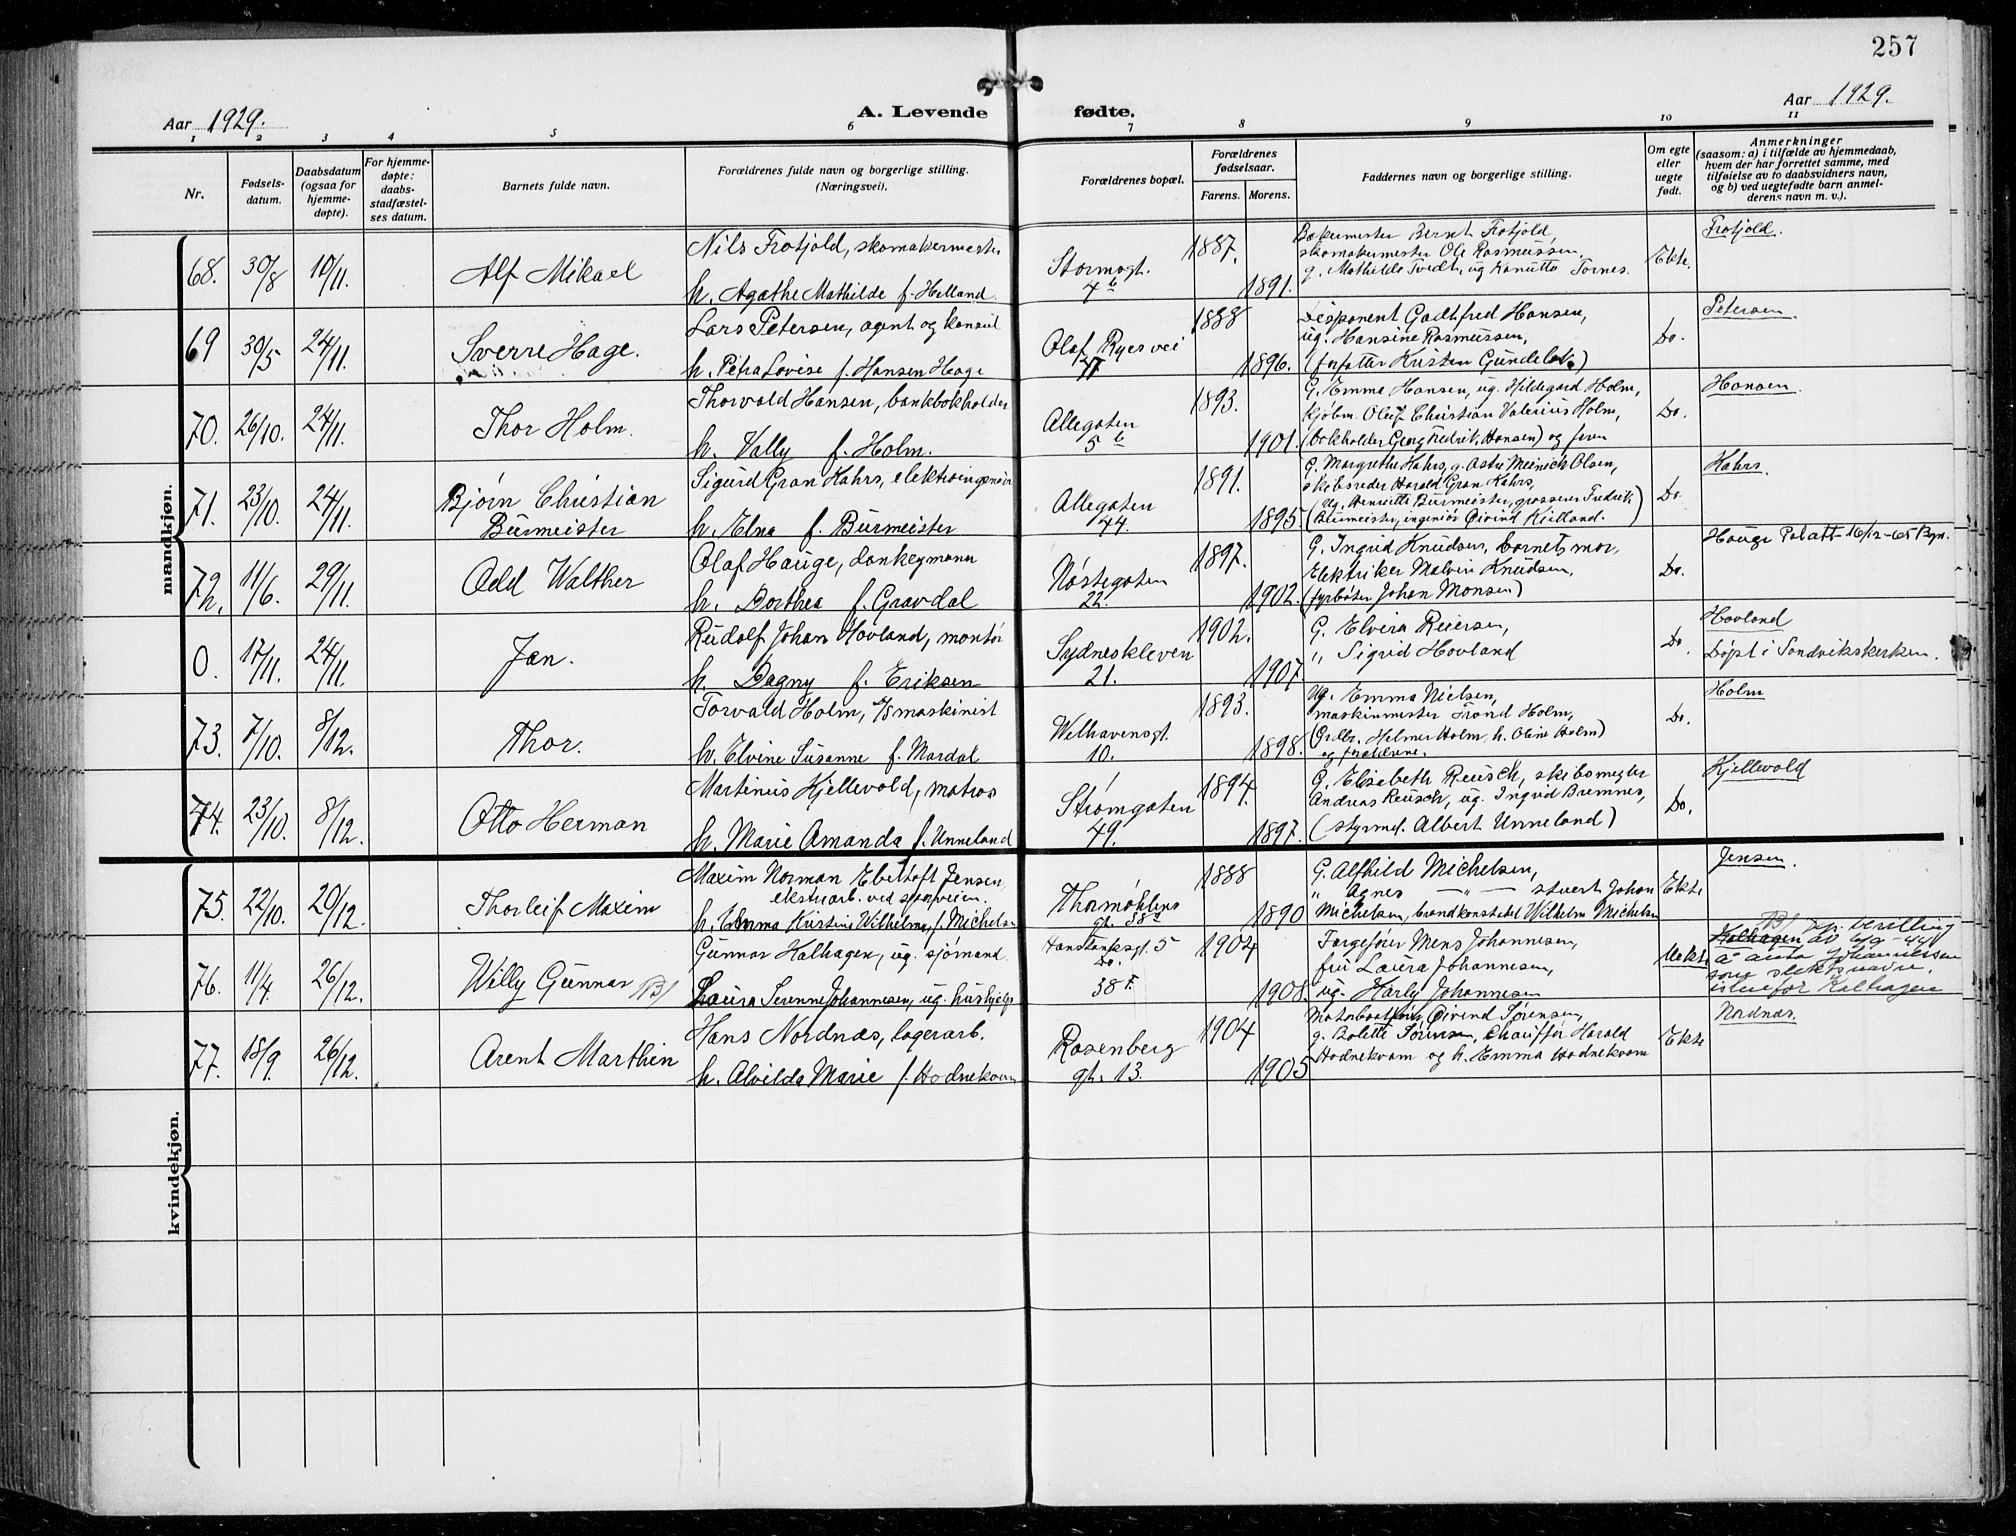 257
Aar 1929.
A. Levende fødte.
Aar 1929.
1 2 3 4 5 6 7 8 9 10 11
Nr.
Fødsels-
datum.
Daabsdatum
(ogsaa for
hjemme-
døpte).
For hjemme-
døpte:
daabs-
stadfæstel-
ses datum.
Barnets fulde navn.
Forældrenes fulde navn og borgerlige stilling.
(Næringsvei).
Forældrenes bopæl.
Forældrenes
fødselsaar.
Farens. Morens.
Faddernes navn og borgerlige stilling.
Om egte
eller
uegte
født.
Anmerkninger
(saasom: a) i tilfælde av hjemmedaab,
hvem der har forrettet samme, med
tilføielse av to daabsvidners navn,
og b) ved uegtefødte barn anmel-
derens navn m. v.).
mandkjøn.
68. 30/8 10/11. Alf Mikael
Nils Frotjold, skomakermester
h. Agathe Mathilde f. Helland.
Stormsgt.
4b
1887. 1891.
Bakermester Bernt Frotjold,
skomakermester Ole Rasmussen,
g. Mathilde Tvedt, ug Kanutte Tornes.
Ekte.
Frotjold.
69 30/5 24/11. Sverre Hage.
Lars Petersen, agent og konsul
h. Petra Lovise f. Hansen Hage
Olaf Ryesvei
1888 1896.
Disponent Gadtfred Hansen,
ug. Hansine Rasmussen,
(forfatter Kristen Gundelak.)
Do.
Petersen.
70. 26/10. 24/11. Thor Holm.
Thorvald Hansen, bankbokholder
h. Vally f. Holm.
Allegaten
5b
1893. 1901.
G. Emma Hansen, ug. Hildegard Holm,
kjøbm. Oluf Christian Valerius Holm,
(bokholder Georg Fredrik Hansen) og faren
Do.
Hansen.
71. 23/10. 24/11. Bjørn Christian
Burmeister
Sigurd Gran Kahrs, elektroingeniør
h. Elna f. Burmeister
Allegaten
44.
1891. 1895
G. Margrethe Kahrs, g. Astri Meinich Olsen,
skibsreder Harald Gran Kahrs,
(ug. Henriette Burmeister, grosserer Fredrik
Burmeister, ingeniør Øivind Kielland.)
Do.
Kahrs.
72. 11/6. 29/11. Odd Walther
Olaf Hauge, donkeymann
h. Dorthea f. Gravdal
Nøstegaten
22.
1897. 1902.
G. Ingrid Knudsen, barnets mor,
Elektriker Malvin Knudsen,
(fyrbøter Johan Monsen)
Do.
Hauge Polatt 16/12-65 Bgn.
0. 17/11. 24/11. Jan.
Rudolf Johan Hovland, montør
h. Dagny f. Eriksen
Sydneskleven
21.
1902. 1907
G. Elvira Reiersen,
" Sigrid Hovland
Do.
Hovland
Døpt i Sandvikskirken.
73. 7/10. 8/12. Thor.
Torvald Holm, maskinist
h. Elvine Susanne f. Mardal
Welhavensgt.
10.
1893. 1898.
Ug. Emma Nielsen,
maskinmester Trond Holm,
(Ordbr. Helmer Holm, h. Oline Holm)
og forældrene.
Do.
Holm
74. 23/10. 8/12. Otto Herman
Martinus Kjellevold, matros
h. Marie Amanda f. Unneland
Strømgaten
49.
1894. 1897.
G. Elisabeth Reusch, skibsmegler
Andreas Reusch, ug. Ingrid Bremnes,
(styrmd. Albert Unneland)
Do.
Kjellevold
kvindekjøn.
75. 22/10. 20/12. Thorleif Maxim
Maxim Norman Ebeltoft Jensen,
ekstraarb. ved sporveien.
h. Emma Kristine Wilhelmine f. Michelsen
Thormøhlens
gt. 38a
1888 1890
G. Alfhild Michelsen,
" Agnes — " — stuert Johan
Michelsen, brandkonstabel Wilhelm Michelsen
Ekte
Jensen.
76. 11/4. 26/12. Willy Gunnar B)
Gunnar Kalhagen, ug. sjømand
Laura Serenne Johannesen, ug. hushjelp
Hanstanksgt. 5
Do.
38 F.
1904 1908.
Fargefører Mens Johannesen,
fru Laura Johannesen,
ug. Harly Johannesen
Uekte
B) Dep. bevilling
Kalhagen av 6/9-44
å anta Johannessen
som slektsnavn
istedenfor Kalhagen
77. 18/9. 26/12. Arent Marthin
Hans Nordnæs, lagerarb.
h. Alvilda Marie f. Hodnekvam
Rosenberg
gt. 13.
1904 1905
Motorbaatfører Øivind Sørensen,
g. Bolette Sørensen, Chauffør Harald
Hodnekvam og h. Emma Hodnekvam
Ekte
Nordnæs.